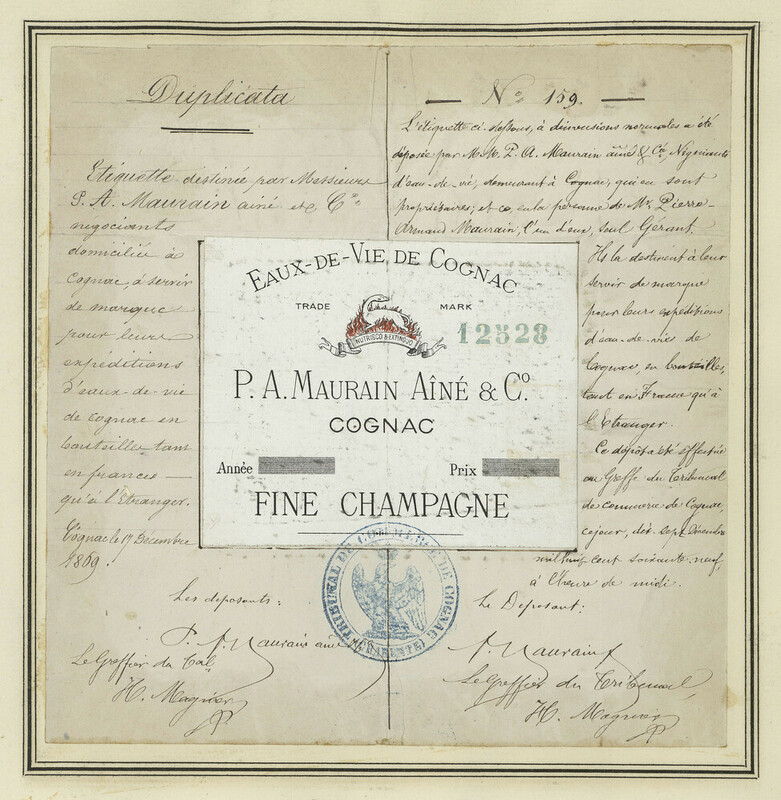 Duplicata
Etiquette destinée par Messieurs
P. A. Maurain ainé et Cie
negociants
domiciliés à
Cognac, à servir
de marque
pour leurs
expéditions
d'eaux-de-vie
de cognac en
bouteilles tant
en france —
qu'à l'Etranger.
Cognac le 17 Décembre
1869.
Les deposants:
P. A. Maurain ainé
Le Greffier du Tal
H. Magnier
— No 159. —
L'étiquette ci-dessous, à dimensions normales a été
déposée par M.M. P. A. Maurain ainé & Cie, Négociants
d'eau-de-vie, demeurant à Cognac, qui en sont
propriétaires; et ce, en la personne de Mr Pierre-
Armand Maurain, l'un d'eux, seul Gerant.
Ils la destinent à leur
servir de marque
pour leurs expéditions
d'eau-de-vie de
Cognac, en bouteilles,
tant en France qu'à
l'Etranger.
Ce dépôt a été effectué
au Greffe du Tribunal
de commerce de Cognac,
ce jour, dix-sept Décembre
mil huit cent soixante-neuf,
à l'heure de midi.
Le Deposant:
A. Maurain
Le Greffier du Tribunal,
H. Magnier
EAUX-DE-VIE DE COGNAC
TRADE MARK
NUTRISCO & EXTINGUO
12528
P. A. MAURAIN AÎNÉ & Co.
COGNAC
Année Prix
FINE CHAMPAGNE
TRIBUNAL DE COMMERCE DE COGNAC
(CHARENTE)